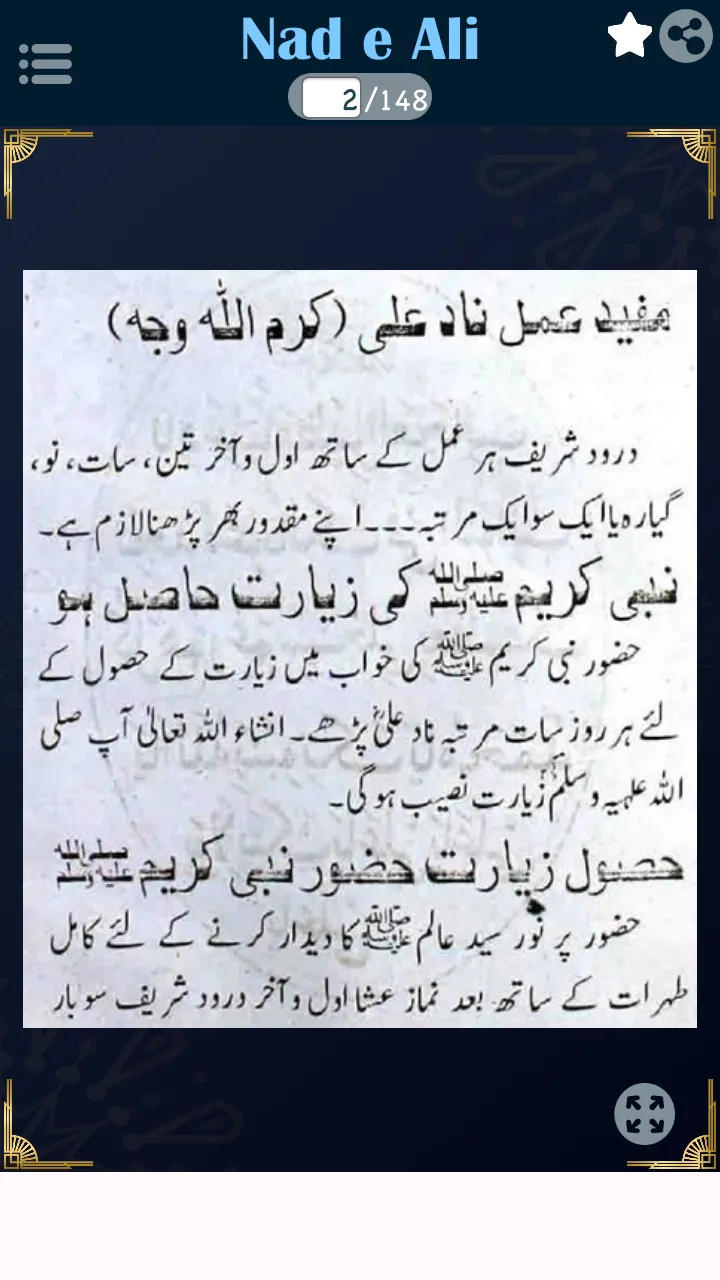 Nad e Ali
2/148
مفید عمل ناد علی (کرم اللہ وجہ)
درود شریف ہر عمل کے ساتھ اول و آخر تین، سات، نو،
گیارہ یا ایک سو ایک مرتبہ۔۔۔اپنے مقدور بھر پڑھنا لازم ہے۔
نبی کریم ﷺ کی زیارت حاصل ہو
حضور نبی کریم ﷺ کی خواب میں زیارت کے حصول کے
لئے ہر روز سات مرتبہ ناد علیؓ پڑھے۔ انشاء اللہ تعالیٰ آپ صلی
اللہ علہیہ و سلم زیارت نصیب ہو گی۔
حصول زیارت حضور نبی کریم ﷺ
حضور پر نور سید عالم ﷺ کا دیدار کرنے کے لئے کامل
طہرات کے ساتھ بعد نماز عشا اول و آخر درود شریف سو بار